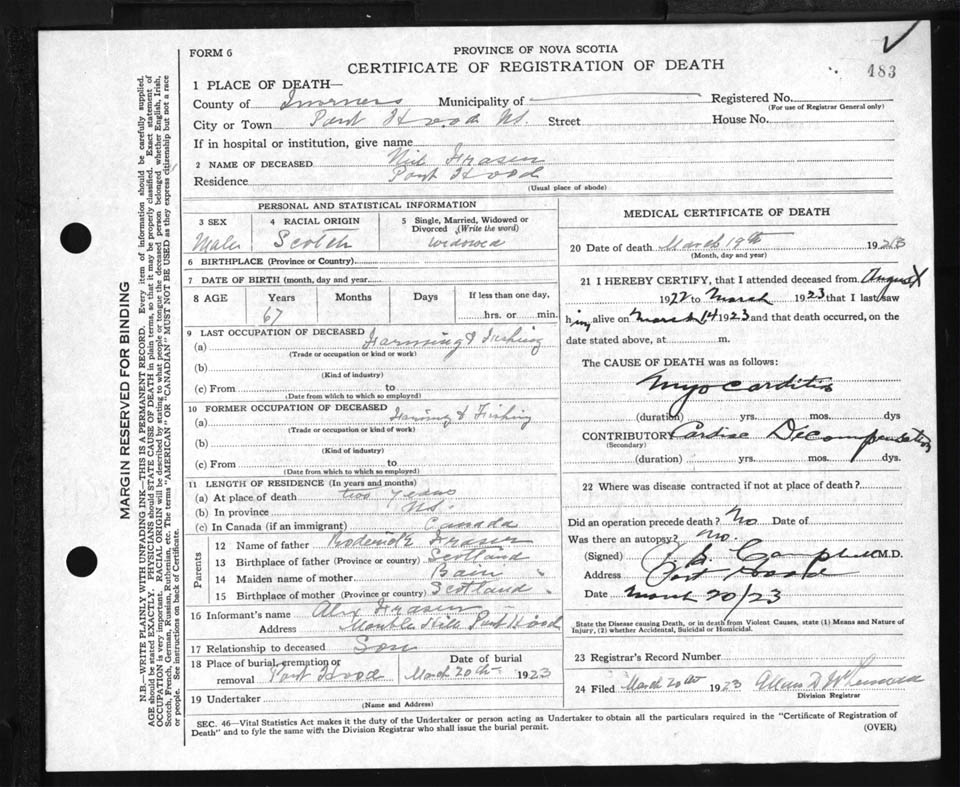 FORM 6
PROVINCE OF NOVA SCOTIA
CERTIFICATE OF REGISTRATION OF DEATH
483
1 PLACE OF DEATH—
County of Inverness Municipality of Registered No.
(For use of Registrar General only)
City or Town Port Hood NS. Street House No.
If in hospital or institution, give name
2 NAME OF DECEASED Neil Fraser
Residence Port Hood
(Usual place of abode)
PERSONAL AND STATISTICAL INFORMATION
3 SEX Male
4 RACIAL ORIGIN Scotch
5 Single, Married, Widowed or Divorced (Write the word)
widowed
6 BIRTHPLACE (Province or Country)
7 DATE OF BIRTH (month, day and year)
8 AGE Years Months Days If less than one day,
67 hrs. or min.
9 LAST OCCUPATION OF DECEASED
(a) Farming & Fishing
(Trade or occupation or kind or work)
(b)
(Kind of industry)
(c) From to
(Date from which to which so employed)
10 FORMER OCCUPATION OF DECEASED
(a) Farming & Fishing
(Trade or occupation or kind or work)
(b)
(Kind of industry)
(c) From to
(Date from which to which so employed)
11 LENGTH OF RESIDENCE (In years and months)
(a) At place of death two years
(b) In province NS.
(c) In Canada (if an immigrant) Canada
Parents
12 Name of father Roderick Fraser
13 Birthplace of father (Province or country) Scotland
14 Maiden name of mother Bain
15 Birthplace of mother (Province or country) Scotland
16 Informant's name Alex Fraser
Address Mabou Hills Port Hood
17 Relationship to deceased Son
18 Place of burial, cremation or removal Port Hood
Date of burial March 20th 1923
19 Undertaker
(Name and Address)
MEDICAL CERTIFICATE OF DEATH
20 Date of death March 19th 1923
(Month, day and year)
21 I HEREBY CERTIFY, that I attended deceased from August
1922 to March 1923 that I last saw
him alive on March 14 1923 and that death occurred, on the
date stated above, at m.
The CAUSE OF DEATH was as follows:
Myocarditis
(duration) yrs. mos. dys
CONTRIBUTORY Cardiac Decompensation
(Secondary)
(duration) yrs. mos. dys.
22 Where was disease contracted if not at place of death?
Did an operation precede death? No Date of
Was there an autopsy? No.
(Signed) Campbell M.D.
Address Port Hood
Date March 20/23
State the Disease causing Death, or in death from Violent Causes, state (1) Means and Nature of
Injury, (2) whether Accidental, Suicidal or Homicidal.
23 Registrar's Record Number
24 Filed March 20th 1923
Division Registrar
SEC. 46—Vital Statistics Act makes it the duty of the Undertaker or person acting as Undertaker to obtain all the particulars required in the "Certificate of Registration of
Death" and to fyle the same with the Division Registrar who shall issue the burial permit.
(OVER)
MARGIN RESERVED FOR BINDING
N.B.—WRITE PLAINLY WITH UNFADING INK—THIS IS A PERMANENT RECORD. Every item of information should be carefully supplied.
AGE should be stated EXACTLY. PHYSICIANS should STATE CAUSE OF DEATH in plain terms, so that it may be properly classified. Exact statement of
OCCUPATION is very important. RACIAL ORIGIN will be described by stating to what people or tongue the deceased person belonged whether English, Irish,
Scotch, French, German, Russian, Ruthenian, etc. The terms "AMERICAN" or "CANADIAN" MUST NOT BE USED as they express citizenship but not a race
or people. See instructions on back of Certificate.